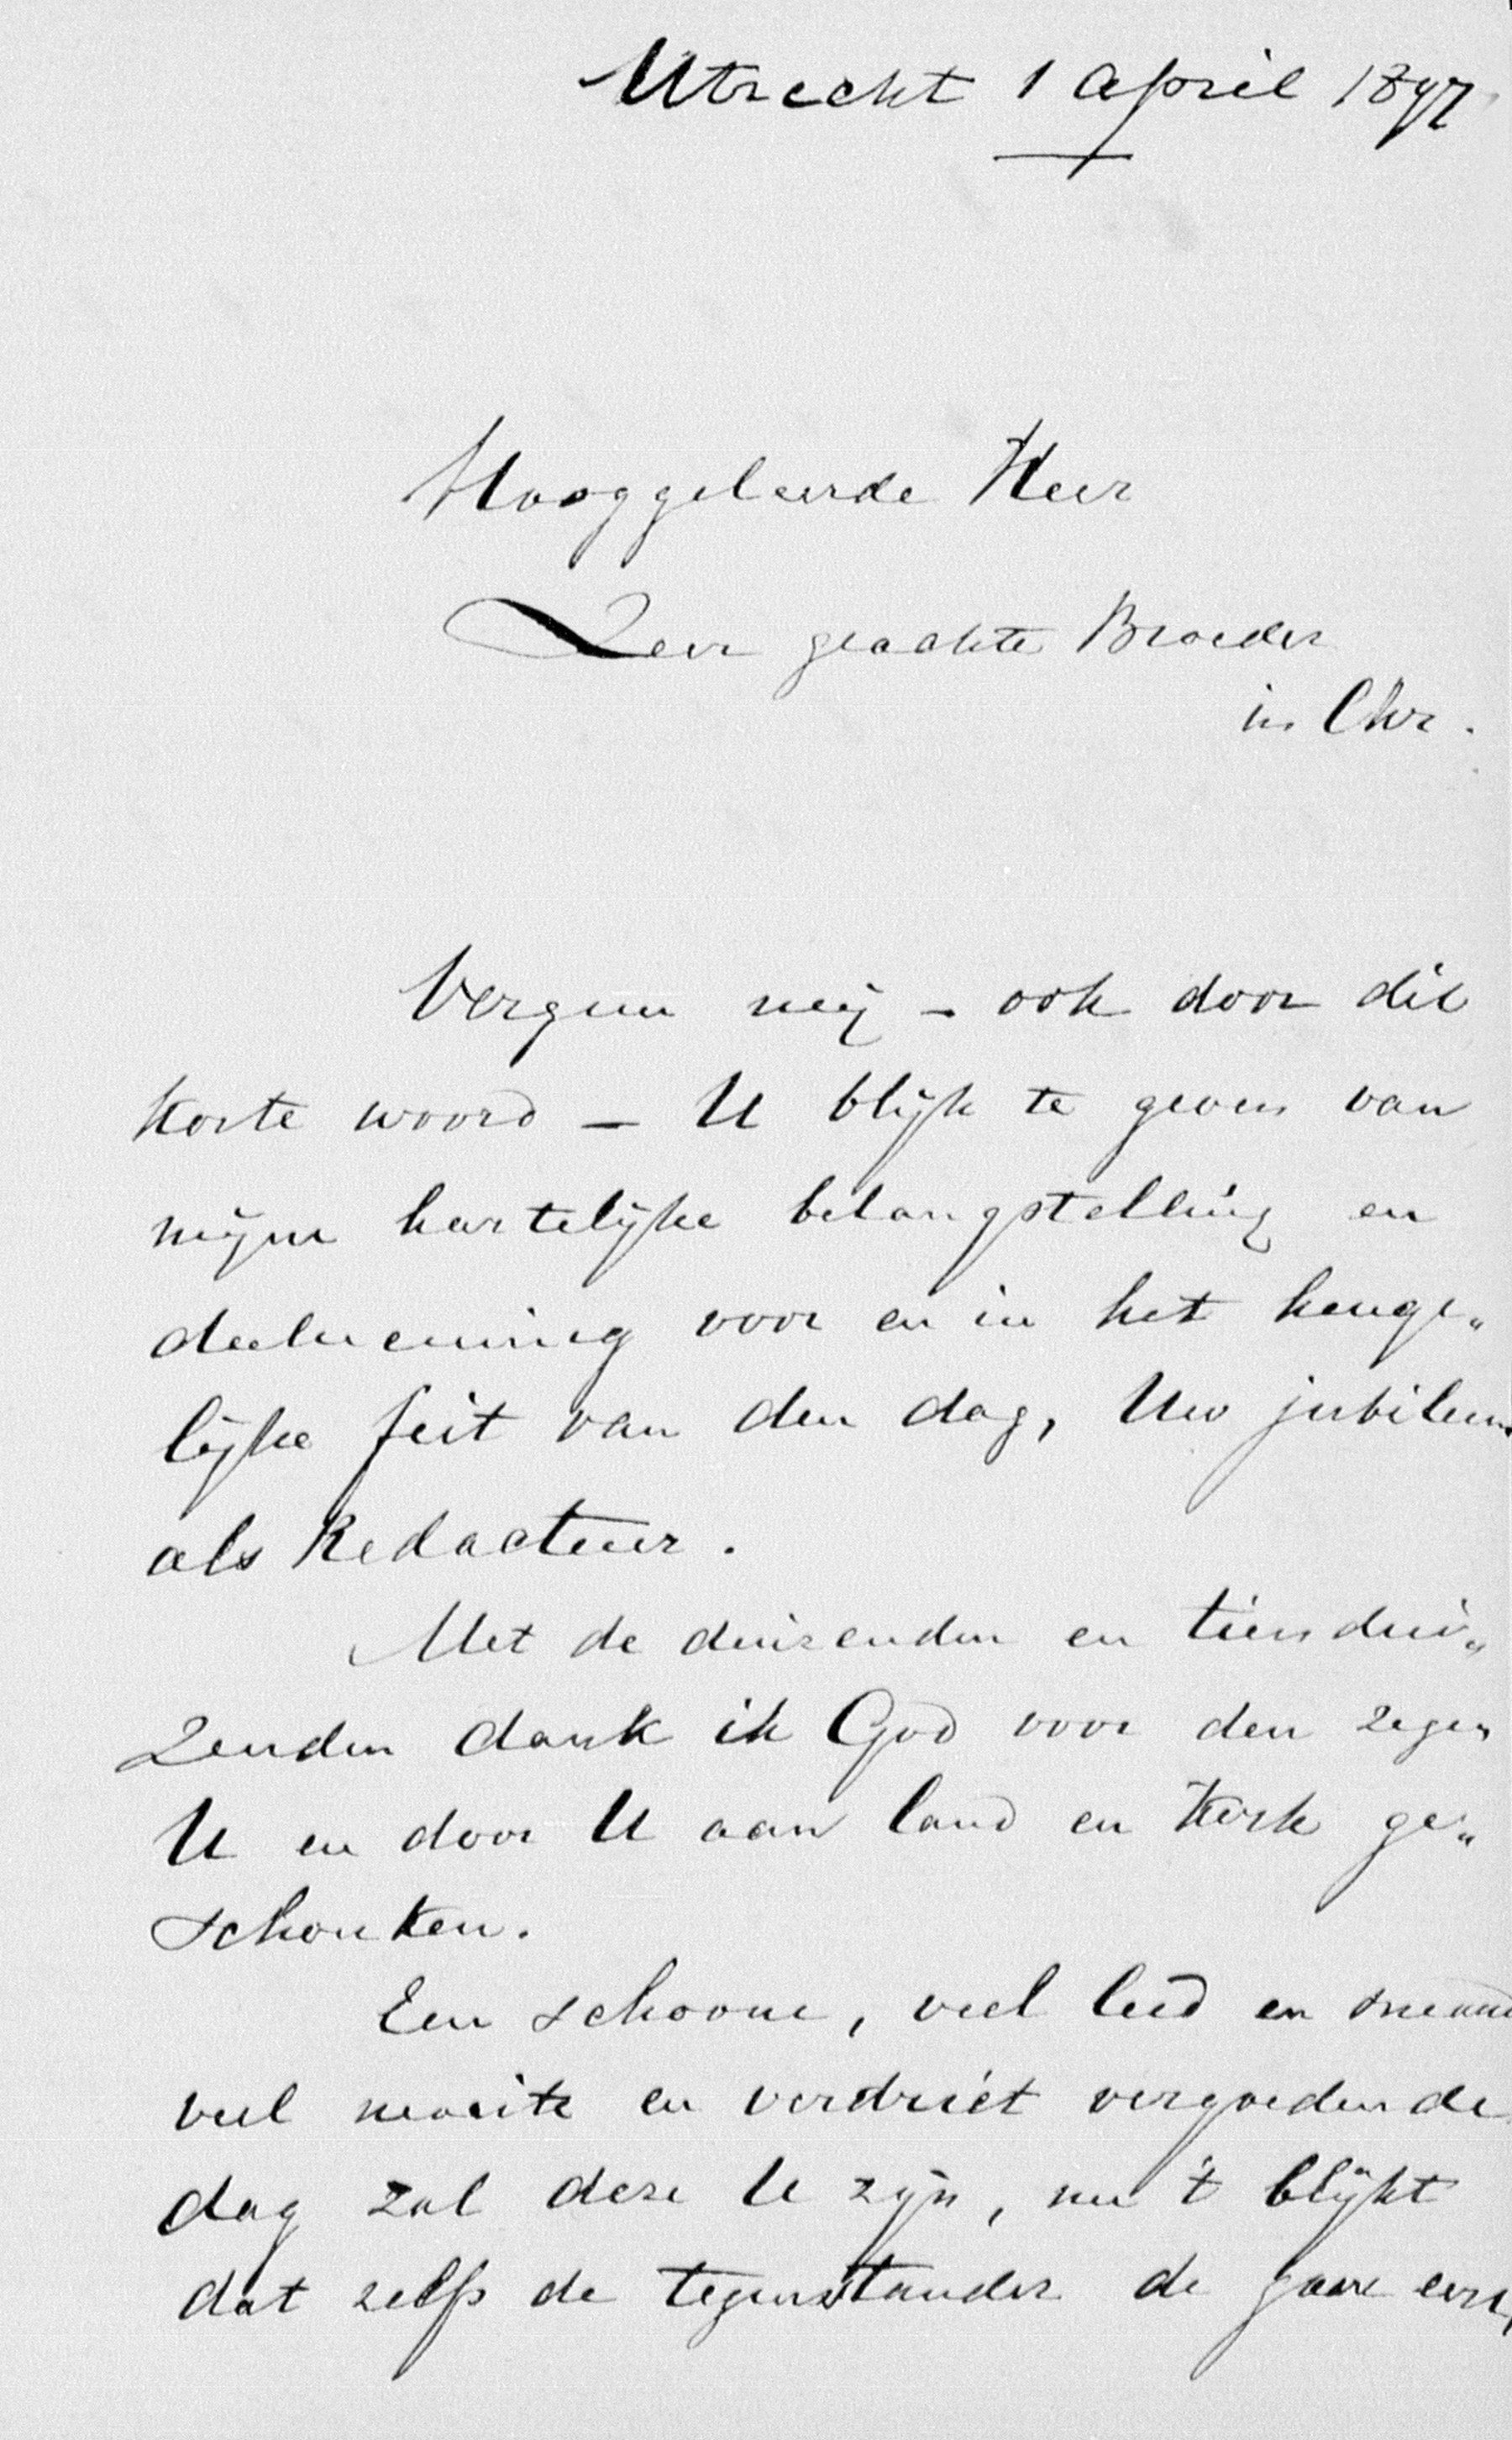 Utrecht 1 April 1897
Hooggeleerde Heer
Zeer geachte Broeder
in Chr.
Vergun mij – ook door dit
korte woord – U blijk te geven van
mijne hartelijke belangstelling en
deelneming voor en in het heuge„
lijke feit van den dag, Uw jubileum
als Redacteur.
Met de duizenden en tiendui„
zenden dank ik God voor den zegen
U en door U aan land en kerk ge„
schonken.
Een schoone, veel leed en smaad
veel moeite en verdriet vergoedende
dag zal deze U zijn, nu 't blijkt
dat zelfs de tegenstander de gave